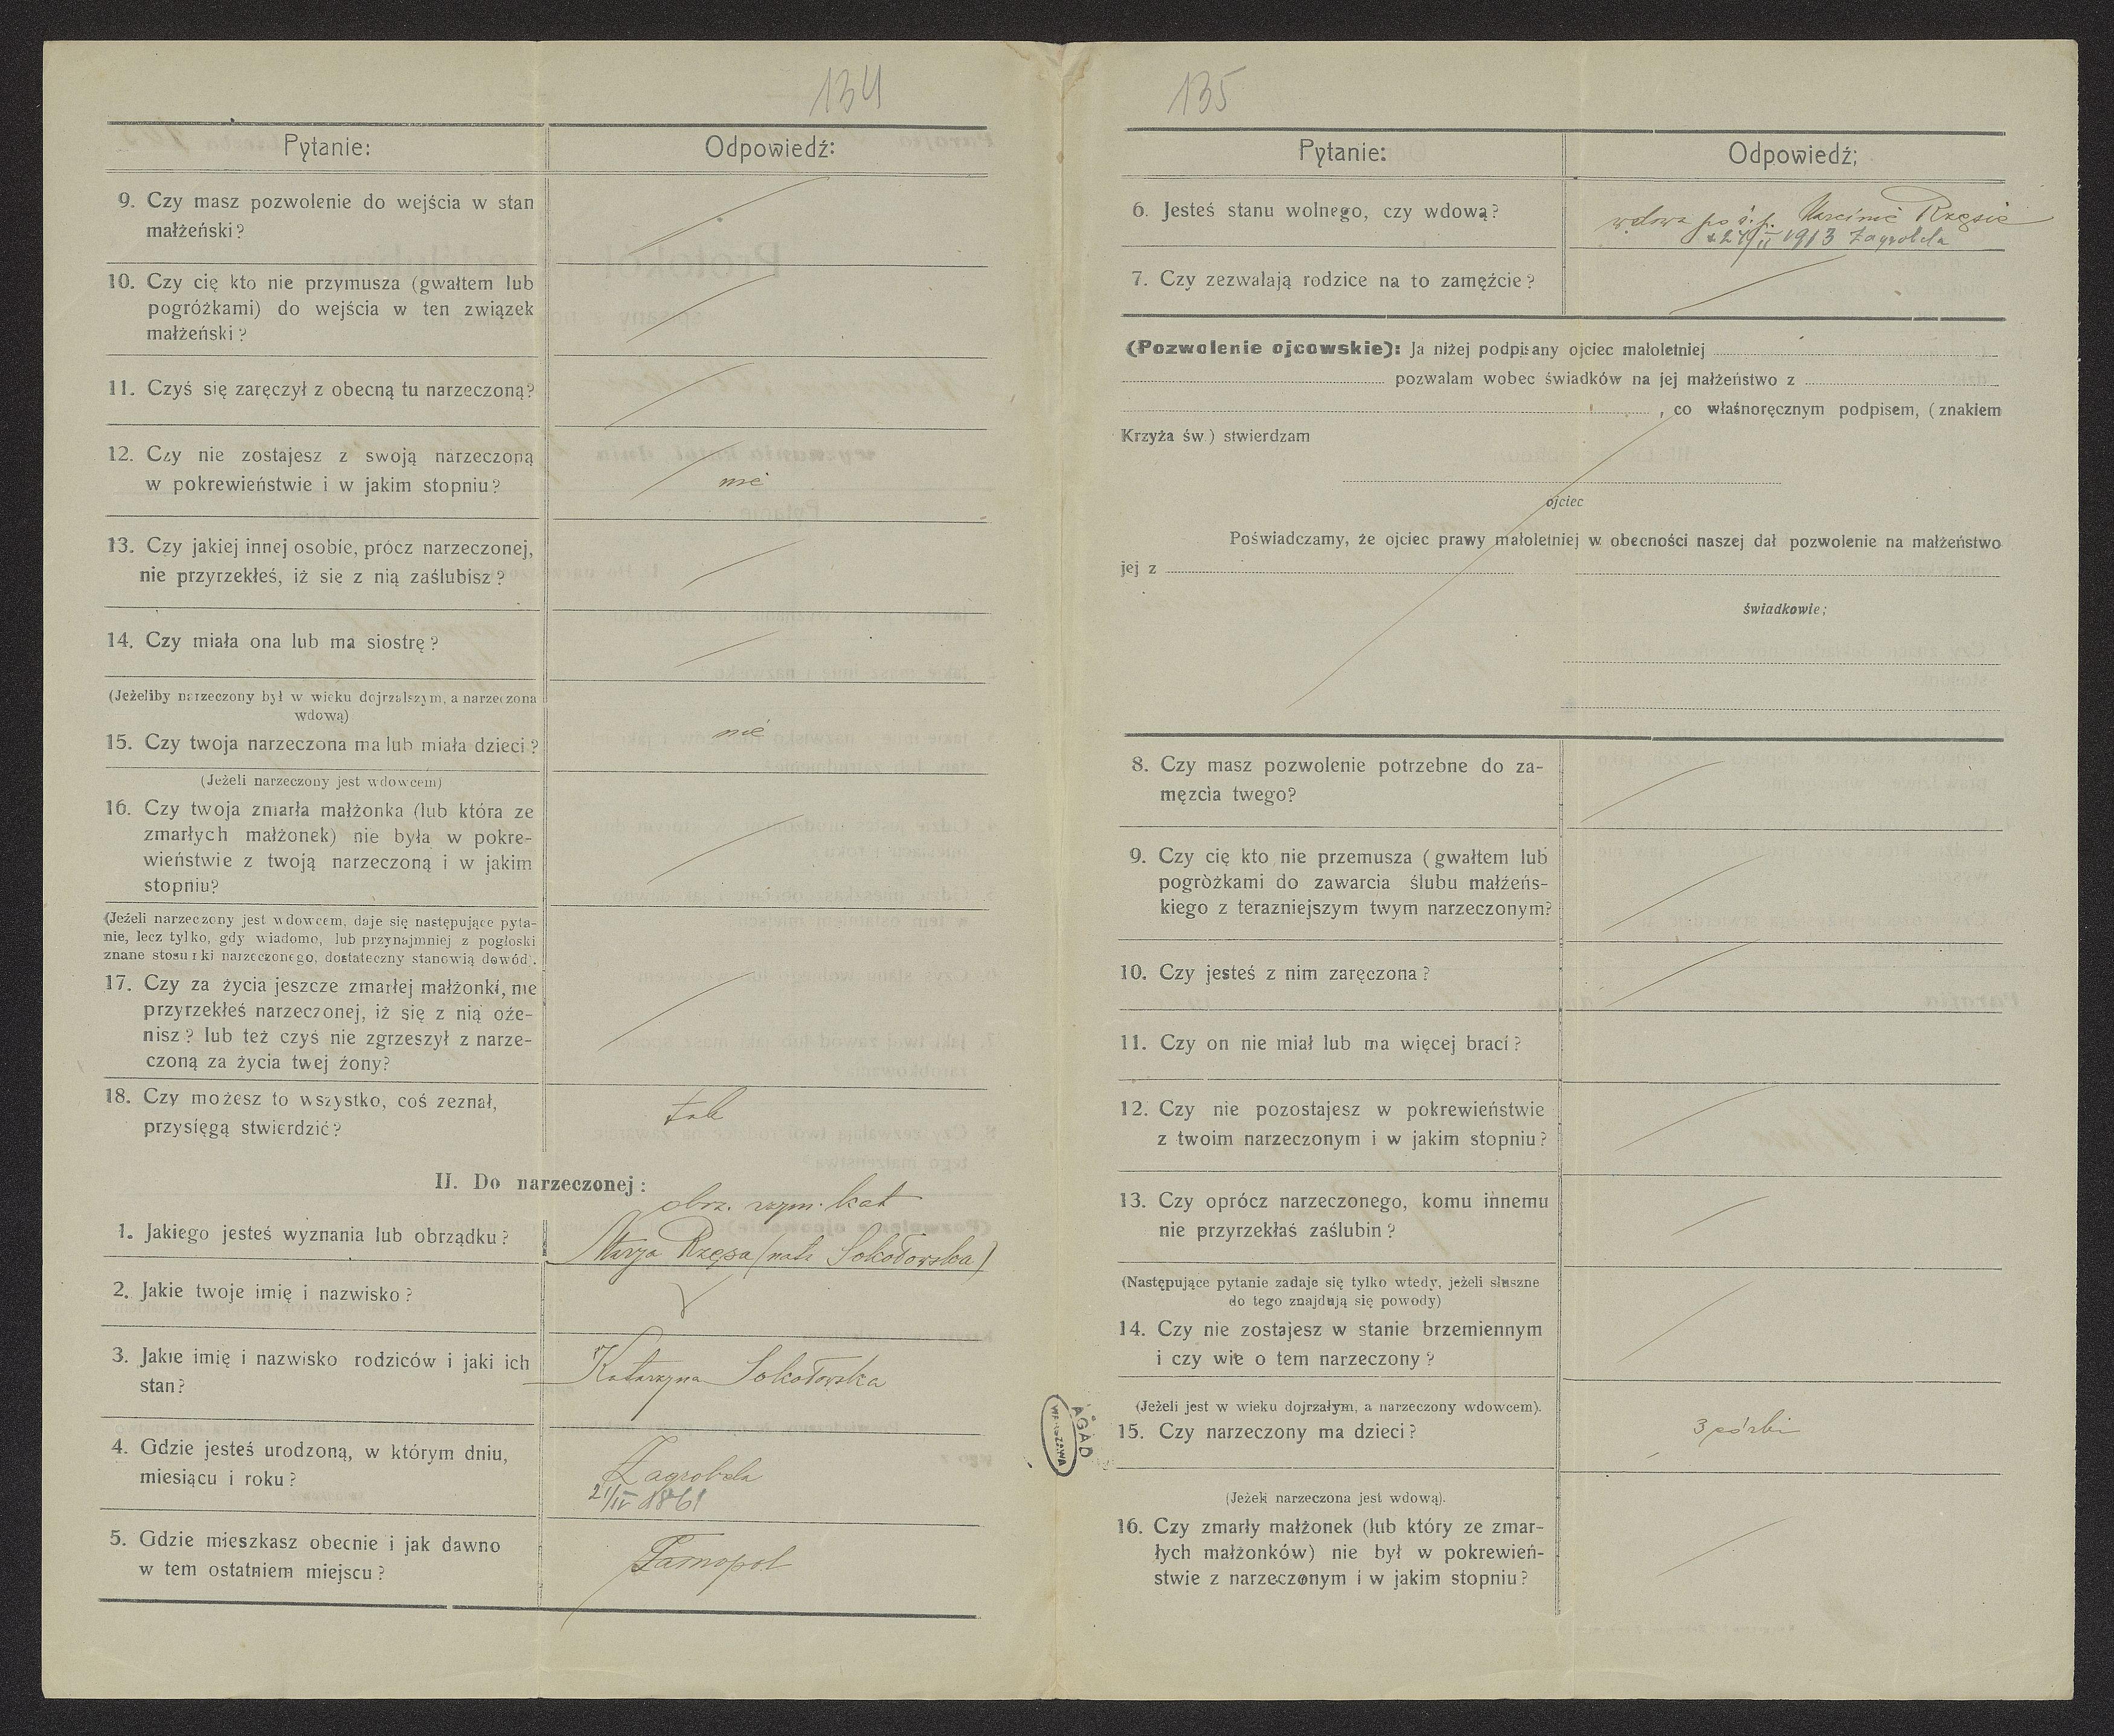 134
Pytanie:
Odpowiedź:
9. Czy masz pozwolenie do wejścia w stan
małżeński?
10. Czy cię kto nie przymusza (gwałtem lub
pogróżkami) do wejścia w ten związek
małżeński?
11. Czyś się zaręczył z obecną tu narzeczoną?
12. Czy nie zostajesz z swoją narzeczoną
w pokrewieństwie i w jakim stopniu?
nie
13. Czy jakiej innej osobie, prócz narzeczonej,
nie przyrzekłeś, iż sie z nią zaślubisz?
14. Czy miała ona lub ma siostrę?
(Jeżeliby narzeczony był w wieku dojrzalszym, a narzeczona
wdową)
15. Czy twoja narzeczona ma lub miała dzieci?
nie
(Jeżeli narzeczony jest wdowcem)
16. Czy twoja zmarła małżonka (lub która ze
zmarłych małżonek) nie była w pokre-
wieństwie z twoją narzeczoną i w jakim
stopniu?
(Jeżeli narzeczony jest wdowcem, daje się następujące pyta-
nie, lecz tylko, gdy wiadome, lub przynajmniej z pogłoski
znane stosunki narzeczonego, dostateczny stanowią dowód).
17. Czy za życia jeszcze zmarłej małżonki, nie
przyrzekłeś narzeczonej, iż się z nią oże-
nisz? lub też czyś nie zgrzeszył z narze-
czoną za życia twej żony?
18. Czy możesz to wszystko, coś zeznał,
przysięgą stwierdzić?
tak
II. Do narzeczonej:
obrz. rzym. kat
1. Jakiego jesteś wyznania lub obrządku?
Marja Rzęsa (nata Sokołowska)
2. Jakie twoje imię i nazwisko?
3. Jakie imię i nazwisko rodziców i jaki ich
stan?
Katarzyna Sokołowska
4. Gdzie jesteś urodzoną, w którym dniu,
miesiącu i roku?
Zagrobela
21/IV 1861
5. Gdzie mieszkasz obecnie i jak dawno
w tem ostatniem miejscu?
Tarnopol
135
Pytanie:
Odpowiedź;
6. Jesteś stanu wolnego, czy wdową?
wdowa po ś.p. Marcinie Rzęsie
27/II 1913 Zagrobela
7. Czy zezwalają rodzice na to zamęźcie?
(Pozwolenie ojcowskie): Ja niżej podpisany ojciec małoletniej
pozwalam wobec świadków na jej małżeństwo z
, co właśnoręcznym podpisem, (znakiem
Krzyża św.) stwierdzam
ojciec
Poświadczamy, że ojciec prawy małoletniej w obecności naszej dał pozwolenie na małżeństwo
jej z
świadkowie;
8. Czy masz pozwolenie potrzebne do za-
męzcia twego?
9. Czy cię kto nie przemusza (gwałtem lub
pogròżkami do zawarcia ślubu małżeńs-
kiego z terazniejszym twym narzeczonym?
10. Czy jesteś z nim zaręczona?
11. Czy on nie miał lub ma więcej braci?
12. Czy nie pozostajesz w pokrewieństwie
z twoim narzeczonym i w jakim stopniu?
13. Czy oprócz narzeczonego, komu innemu
nie przyrzekłaś zaślubin?
(Następujące pytanie zadaje się tylko wtedy, jeżeli słuszne
do tego znajdują się powody)
14. Czy nie zostajesz w stanie brzemiennym
i czy wie o tem narzeczony?
(Jeżeli jest w wieku dojrzałym, a narzeczony wdowcem).
15. Czy narzeczony ma dzieci?
3 córki
AGAD
WARSZAWA
(Jeżeli narzeczona jest wdową).
16. Czy zmarły małżonek (lub który ze zmar-
łych małżonków) nie był w pokrewień-
stwie z narzeczonym i w jakim stopniu?